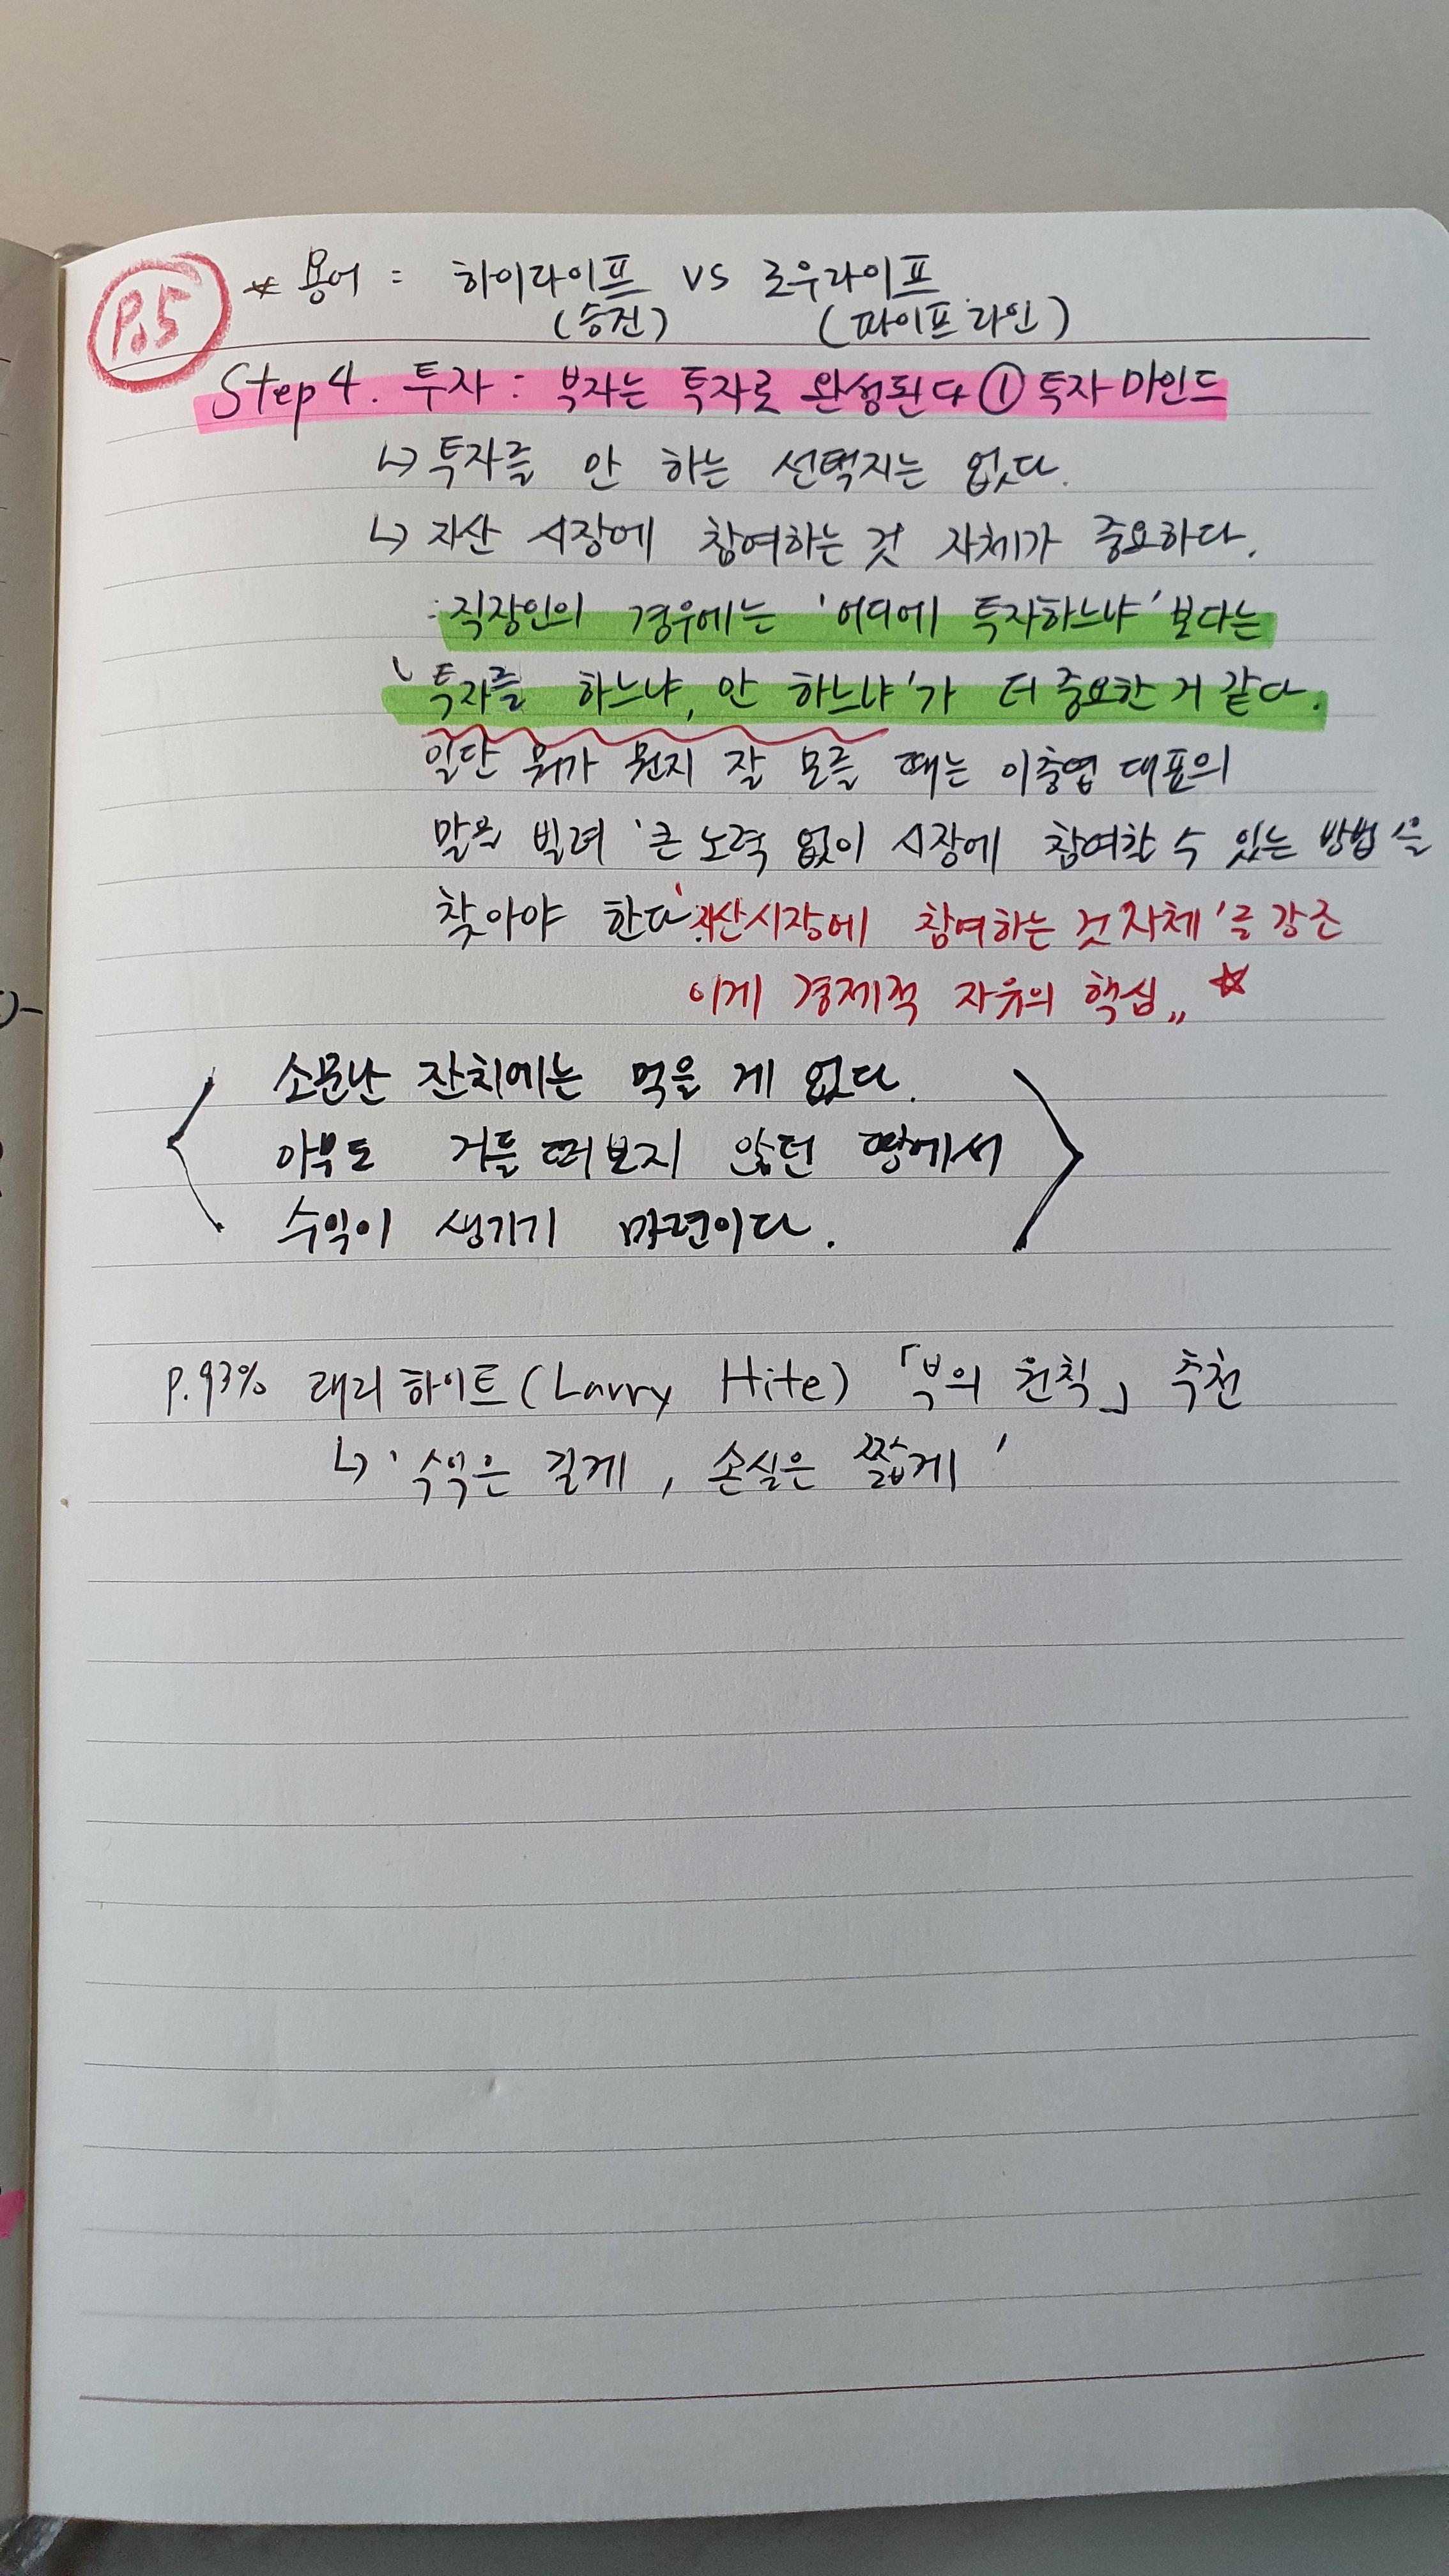 P.5
* 용어 : 하이라이프 vs 로우라이프
(승진) (파이프라인)
Step 4. 투자 : 부자는 투자로 완성된다 ① 투자 마인드
↳ 투자를 안 하는 선택지는 없다.
↳ 자산 시장에 참여하는 것 자체가 중요하다.
: 직장인의 경우에는 '어디에 투자하느냐' 보다는
'투자를 하느냐, 안 하느냐'가 더 중요한 거 같다.
일단 뭐가 뭔지 잘 모를 때는 이충엽 대표의
말을 빌려 '큰 노력 없이 시장에 참여할 수 있는 방법을
찾아야 한다' '자산시장에 참여하는 것 자체'를 강조
이게 경제적 자유의 핵심,, ☆
소문난 잔치에는 먹을 게 없다.
아무도 거들떠보지 않던 땅에서
수익이 생기기 마련이다.
P.93% 래리 하이트(Larry Hite) 「부의 원칙」 추천
↳ '수익은 길게, 손실은 짧게'